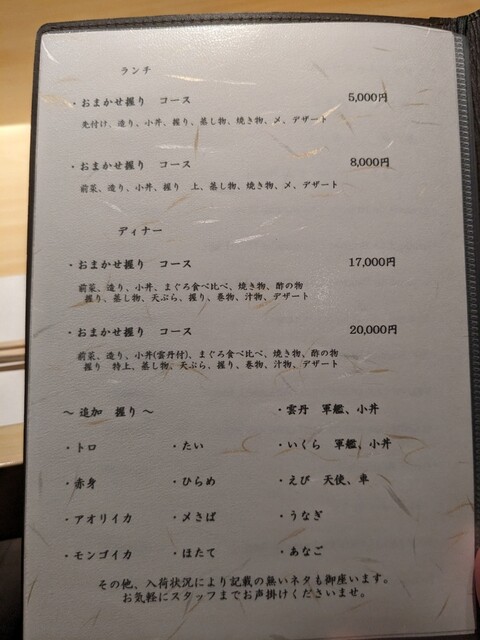 ランチ
・おまかせ握り コース 5,000円
先付け、造り、小丼、握り、蒸し物、焼き物、〆、デザート
・おまかせ握り コース 8,000円
前菜、造り、小丼、握り 上、蒸し物、焼き物、〆、デザート
ディナー
・おまかせ握り コース 17,000円
前菜、造り、小丼、まぐろ食べ比べ、焼き物、酢の物
握り、蒸し物、天ぷら、握り、巻物、汁物、デザート
・おまかせ握り コース 20,000円
前菜、造り、小丼(雲丹付)、まぐろ食べ比べ、焼き物、酢の物
握り 特上、蒸し物、天ぷら、握り、巻物、汁物、デザート
～ 追加 握り ～ ・雲丹 軍艦、小丼
・トロ ・たい ・いくら 軍艦、小丼
・赤身 ・ひらめ ・えび 天使、車
・アオリイカ ・〆さば ・うなぎ
・モンゴイカ ・ほたて ・あなご
その他、入荷状況により記載の無いネタも御座います。
お気軽にスタッフまでお声掛けくださいませ。